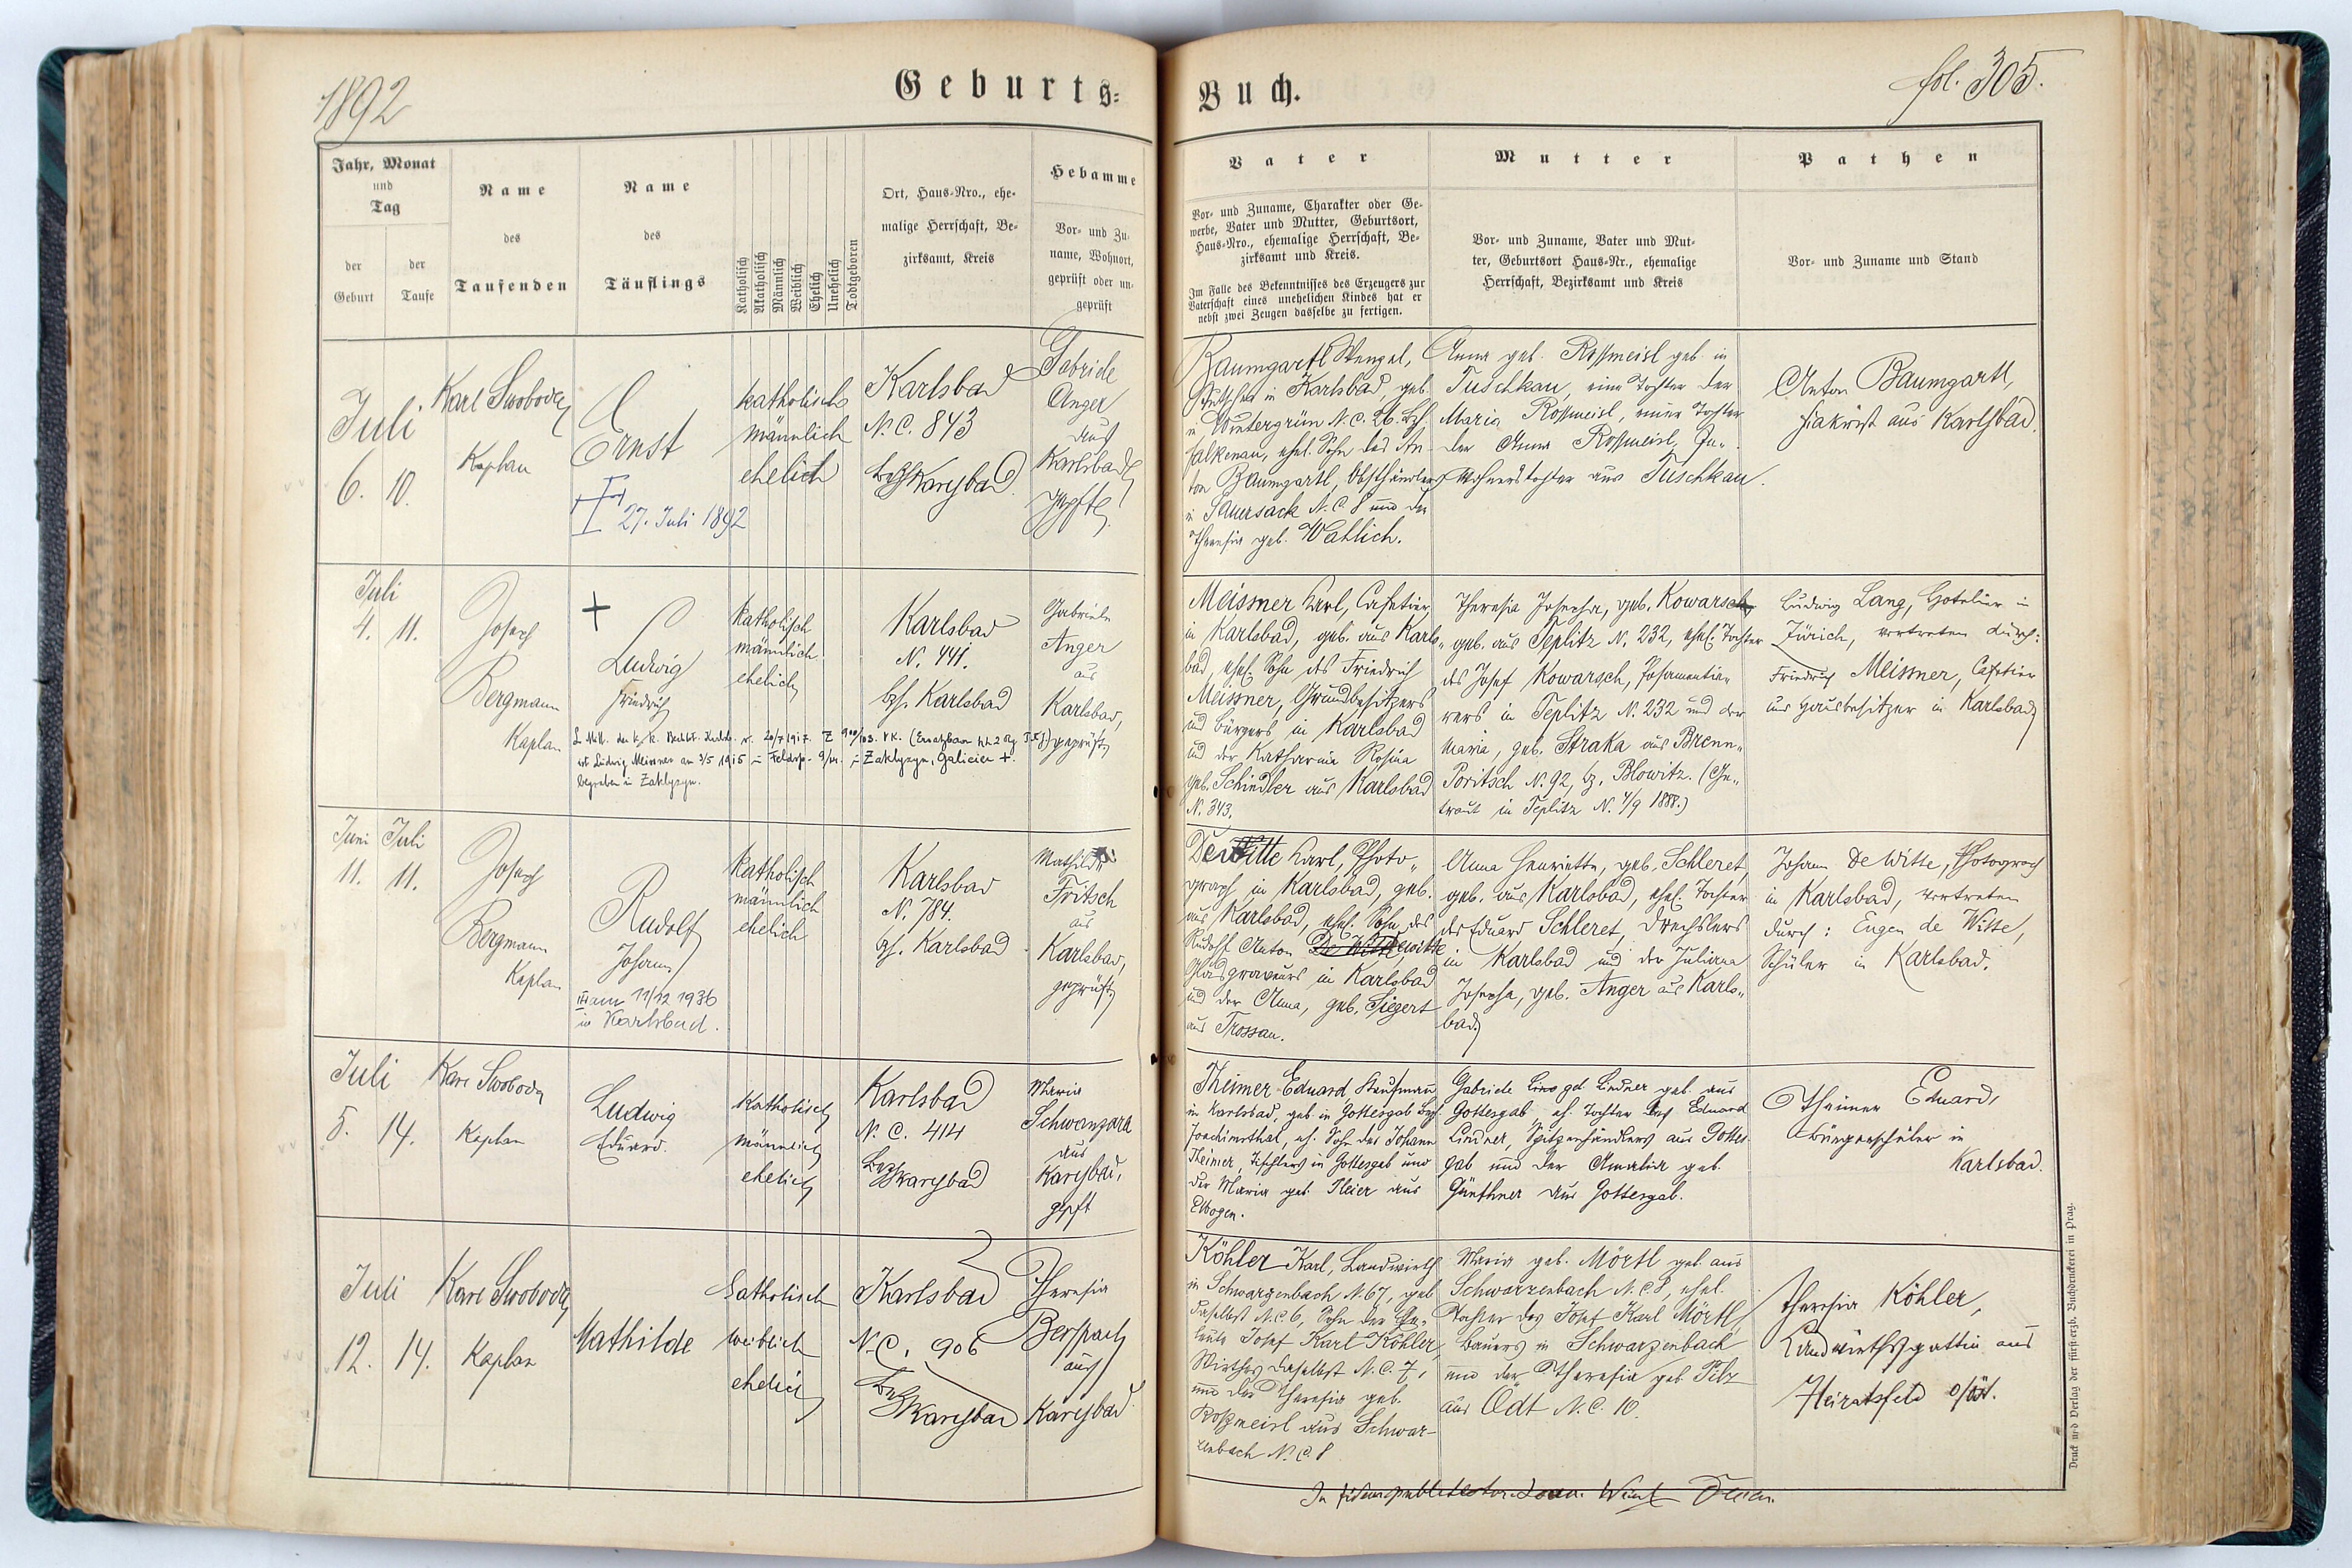 1892
Geburts-
Buch.
fol. 305.
Jahr, Monat
und
Tag
der
Geburt
der
Taufe
Name
des
Taufenden
Name
des
Täuflings
Katholisch
Akatholisch
Männlich
Weiblich
Ehelich
Unehelich
Todtgeboren
Ort, Haus-Nro., ehe-
malige Herrschaft, Be-
zirksamt, Kreis
Hebamme
Vor- und Zu-
name, Wohnort,
geprüft oder un-
geprüft
Vater
Vor- und Zuname, Charakter oder Ge-
werbe, Vater und Mutter, Geburtsort,
Haus-Nro., ehemalige Herrschaft, Be-
zirksamt und Kreis.
Im Falle des Bekenntnisses des Erzeugers zur
Vaterschaft eines unehelichen Kindes hat er
nebst zwei Zeugen dasselbe zu fertigen.
Mutter
Vor- und Zuname, Vater und Mut-
ter, Geburtsort Haus-Nr., ehemalige
Herrschaft, Bezirksamt und Kreis
Pathen
Vor- und Zuname und Stand
Juli
6. 10.
Karl Swoboda
Kaplan
Ernst
27. Juli 1892
katholisch
männlich
ehelich
Karlsbad
N. C. 843
Karlsbad
Gabriele
Anger
aus
Karlsbad
gepft.
Baumgartl Wenzel,
in Karlsbad, geb.
in Wintergrün N. C. 26. Bzh.
Falkenau, ehel. Sohn des An-
ton Baumgartl, Obsthändlers
in Sauersack N. C. 8 und der
Theresia geb. Wahlich.
Anna geb. Roßmeisl geb. in
Tuschkau, eine Tochter der
Maria Roßmeisl, einer Tochter
der Anna Roßmeisl, In-
wohnerstochter aus Tuschkau.
Anton Baumgartl,
Fiakrist aus Karlsbad.
Juli
4. 11.
Josef
Bergmann
Kaplan
+
Ludwig
Friedrich
ist Ludwig Meissner am 3/5 1915
Zaklyczyn, Galicien +.
begraben in Zaklyczyn.
katholisch
männlich
ehelich
Karlsbad
N. 441.
bzh. Karlsbad
Gabriele
Anger
aus
Karlsbad,
geprüft
Meissner Karl, Cafetier
in Karlsbad, geb. aus Karls-
bad, ehel. Sohn des Friedrich
Meissner, Grundbesitzers
und Bürgers in Karlsbad
und der Katharina Rosina
geb. Schindler aus Karlsbad
N. 343.
Theresia Josepha, geb. Kowarsch
geb. aus Teplitz N. 232, ehel. Tochter
des Josef Kowarsch, Posamentie-
rers in Teplitz N. 232 und der
Maria, geb. Straka aus Brenn-
Poritsch N. 92, bz. Blowitz. (Ge-
traut in Teplitz N. 4/9 1888.)
Ludwig Lang, Hotelier in
Zürich, vertreten durch:
Friedrich Meissner, Cafetier
und Hausbesitzer in Karlsbad
Juni Juli
11. 11.
Josef
Bergmann
Kaplan
Rudolf
Johann
am 11/12 1936
in Karlsbad.
katholisch
männlich
ehelich
Karlsbad
N. 784.
bzh. Karlsbad
Mathilde
Fritsch
aus
Karlsbad,
geprüft
Dewitte Karl, Photo-
graph in Karlsbad, geb.
aus Karlsbad, ehel. Sohn des
Rudolf Anton De Witte Dewitte
Glasgraveurs in Karlsbad
und der Anna, geb. Siegert
aus Trossau.
Anna Henriette, geb. Schleret,
geb. aus Karlsbad, ehel. Tochter
des Eduard Schleret, Drechslers
in Karlsbad und der Juliana
Josepha, geb. Anger aus Karls-
bad.
Johann De Witte, Photograph
in Karlsbad, vertreten
durch: Eugen de Witte,
Schüler in Karlsbad.
Juli
5. 14.
Karl Swoboda
Kaplan
Ludwig
Eduard.
Katholisch
männlich
ehelich
Karlsbad
N. C. 414
Karlsbad
Maria
Schwanzara
aus
Karlsbad,
gepft
Theimer Eduard Kaufmann
in Karlsbad, geb. in Gottesgab Bzh.
Joachimsthal, eh. Sohn des Johann
Theimer, Tischlers in Gottesgab und
der Maria geb. Pleier aus
Elbogen.
Gabriele geb. Lindner geb. aus
Gottesgab, eh. Tochter des Eduard
Lindner, Spitzenhändlers aus Gottes-
gab und der Amalia geb.
Günthner aus Gottesgab.
Theimer Eduard,
Bürgerschüler in
Karlsbad.
Juli
12. 14.
Karl Swoboda
Kaplan
Mathilde
katholisch
weiblich
ehelich
Karlsbad
N. C. 906
Karlsbad
Theresia
aus
Karlsbad
Köhler Karl, Landwirth
in Schwarzenbach N. 67, geb
daselbst N. C. 6, Sohn der Ehe-
leute Josef Karl Köhler,
Wirthes daselbst N. C. 7,
und der Theresia geb.
Roßmeisl aus Schwar-
zenbach N. C. 8
Maria geb. Mörtl geb. aus
Schwarzenbach N. C. 8, ehel.
Tochter des Josef Karl Mörtl,
Bauers in Schwarzenbach
und der Theresia geb. Pilz
aus Ödt N. C. 10.
Theresia Köhler,
Landwirthsgattin aus
Druck und Verlag der fürst-erzb. Buchdruckerei in Prag.